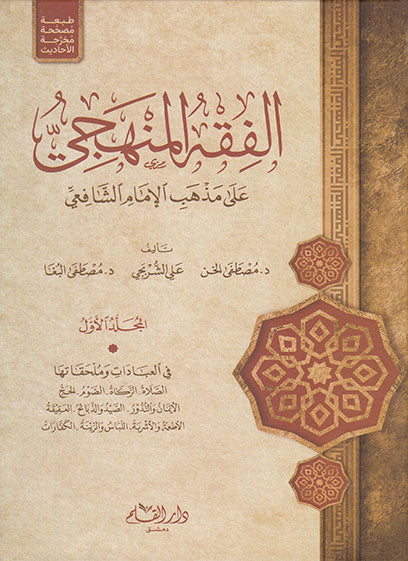 طبعة
مصححة
مخرجة
الأحاديث
الفِقْهُ المَنْهَجِيُّ
عَلَى مَذْهَبِ الإِمَامِ الشَّافِعِيِّ
تأليف
د. مُصْطَفَى الخِن عَلِي الشُّرْبَجِي د. مُصْطَفَى البُغَا
المُجَلَّدُ الأَوَّلُ
في العِبَادَاتِ وَمُلْحَقَاتِهَا
الصَّلَاة . الزَّكَاة . الصَّوْمُ . الحَجّ
الأَيْمَانُ وَالنُّذُورُ . الصَّيْدُ وَالذَّبَائِحُ . العَقِيقَةُ
الأَطْعِمَةُ وَالأَشْرِبَةُ . اللِّبَاسُ وَالزِّينَةُ . الكَفَّارَاتُ
دار القلم
دمشق